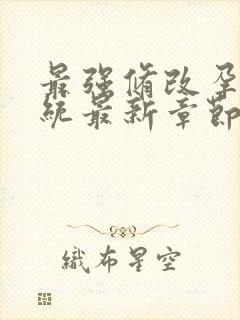 最强脩改孕
统最新章節
織布星空